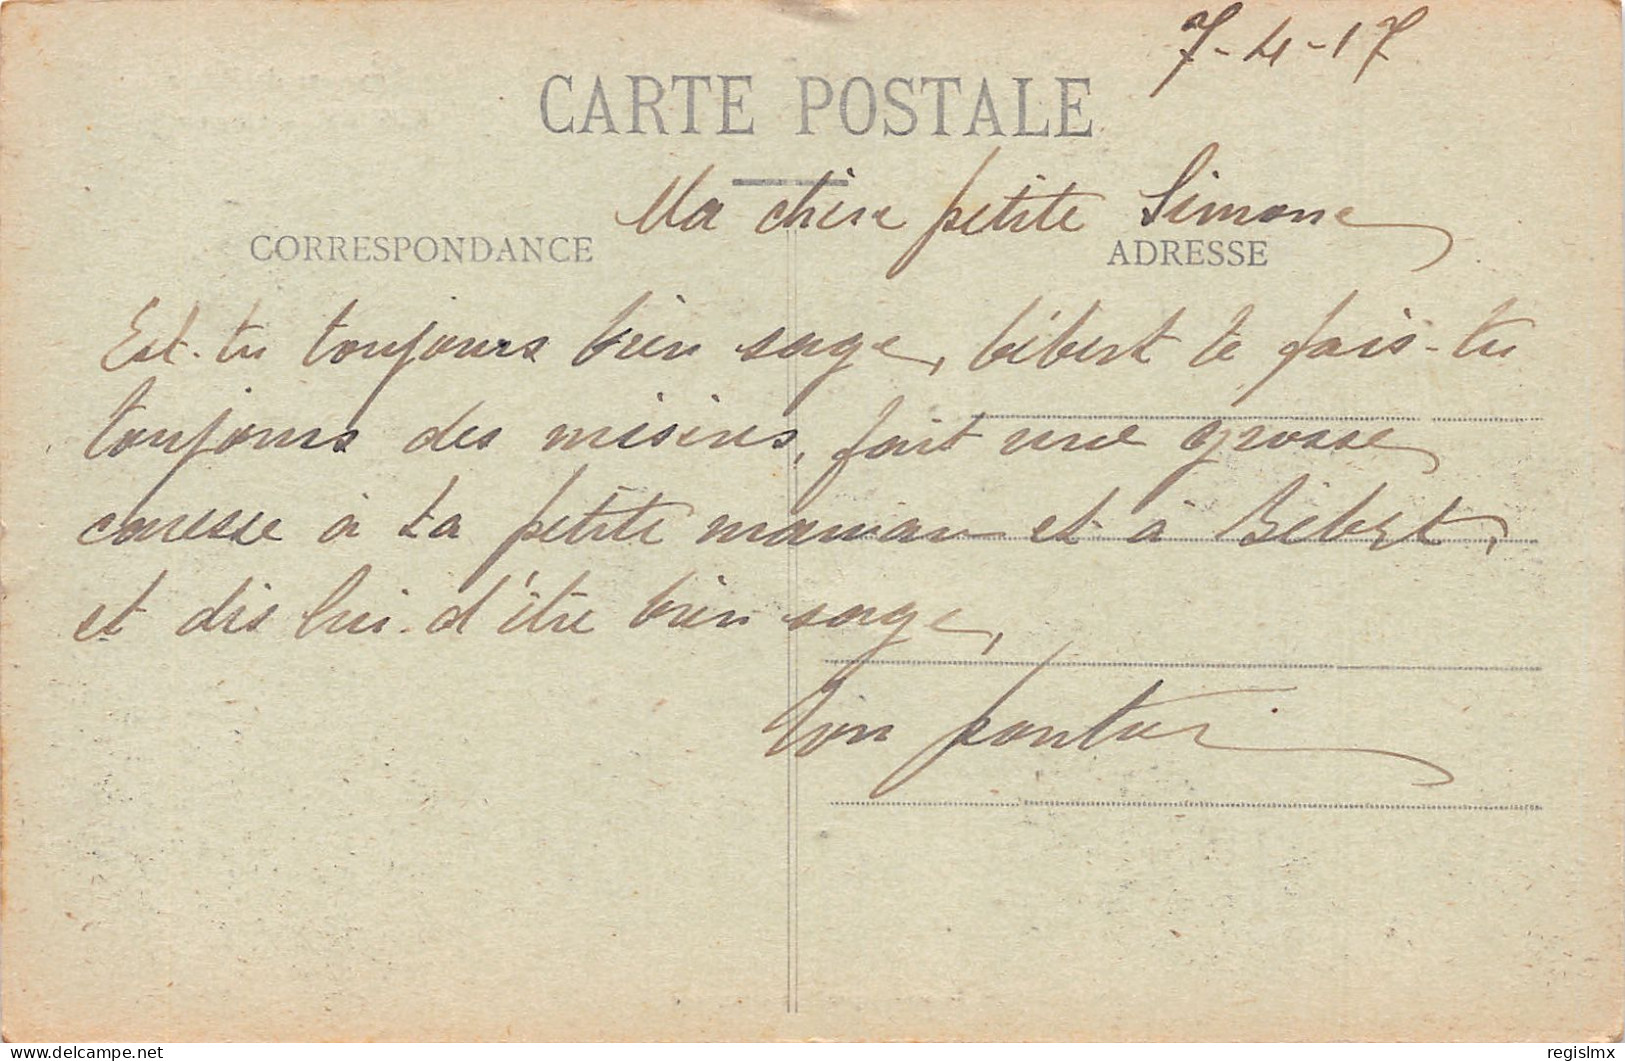 7-4-17
CARTE POSTALE
Ma chère petite Simone
CORRESPONDANCE
ADRESSE
Est-tu toujours bien sage, bébert te fais-tu
toujours des misères, fait une grosse
caresse à ta petite maman et à Bébert,
et dis lui d'être bien sage,
Ton
regislmx